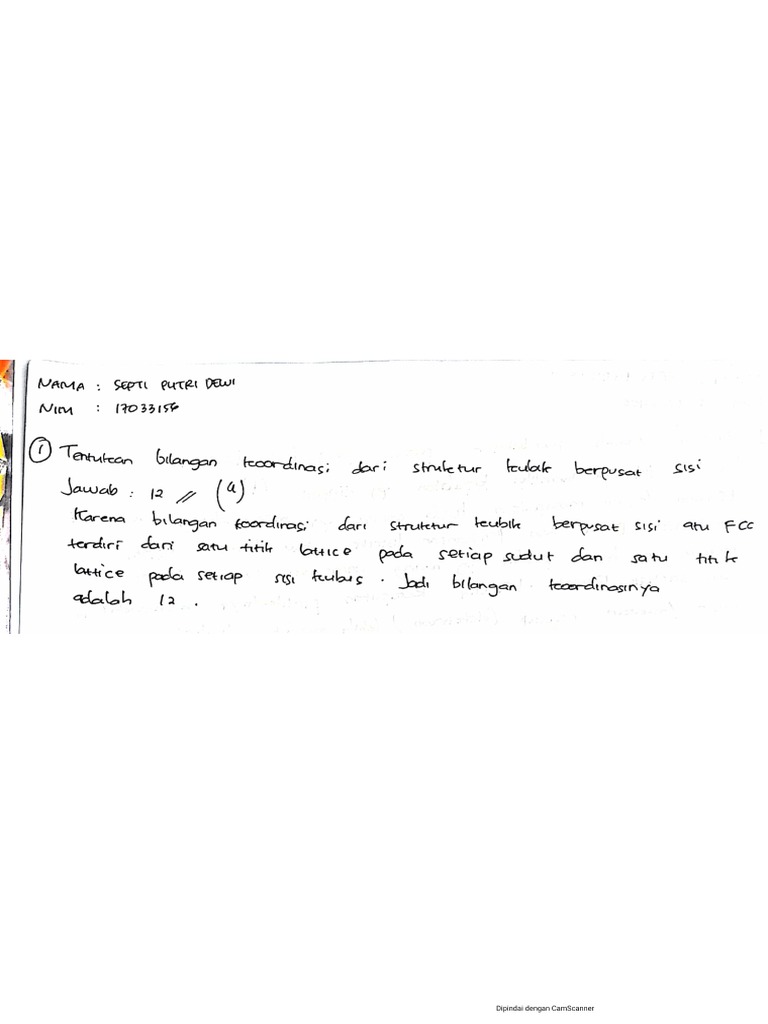 NAMA : SEPTI PUTRI DEWI
NIM : 17033156
① Tentukan bilangan koordinasi dari struktur kubik berpusat sisi
Jawab : 12 // (a)
Karena bilangan koordinasi dari struktur kubik berpusat sisi atu FCC
terdiri dari satu titik lattice pada setiap sudut dan satu titik
lattice pada setiap sisi kubus. Jadi bilangan koordinasinya
adalah 12.
Dipindai dengan CamScanner